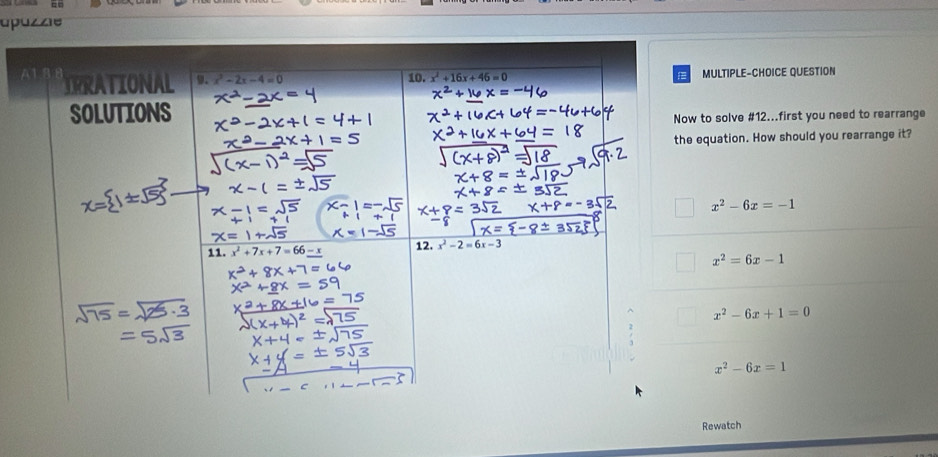 apuzzle
A1.9.8
IRRATIONAL
SOLUTIONS
9. x² - 2x - 4 = 0
x² - 2x = 4
x² - 2x + 1 = 4 + 1
x² - 2x + 1 = 5
√(x - 1)² = √5
x - 1 = ±√5
x = {1 ± √5}
x - 1 = √5 x - 1 = -√5
+1 +1 +1 +1
x = 1 + √5 x = 1 - √5
10. x² + 16x + 46 = 0
x² + 16x = -46
x² + 16x + 64 = -46 + 64
x² + 16x + 64 = 18
√(x + 8)² = √18 √9·2
x + 8 = ±√18
x + 8 = ± 3√2
x + 8 = 3√2 x + 8 = -3√2
-8
x = {-8 ± 3√2}
11. x² + 7x + 7 = 66 - x
x² + 8x + 7 = 66
x² + 8x = 59
x² + 8x + 16 = 75
√(x + 4)² = √75
x + 4 = ±√75
x + 4 = ± 5√3
-4 -4
√75 = √25·3
= 5√3
12. x² - 2 = 6x - 3
MULTIPLE-CHOICE QUESTION
Now to solve #12...first you need to rearrange
the equation. How should you rearrange it?
x² - 6x = -1
x² = 6x - 1
x² - 6x + 1 = 0
x² - 6x = 1
Rewatch